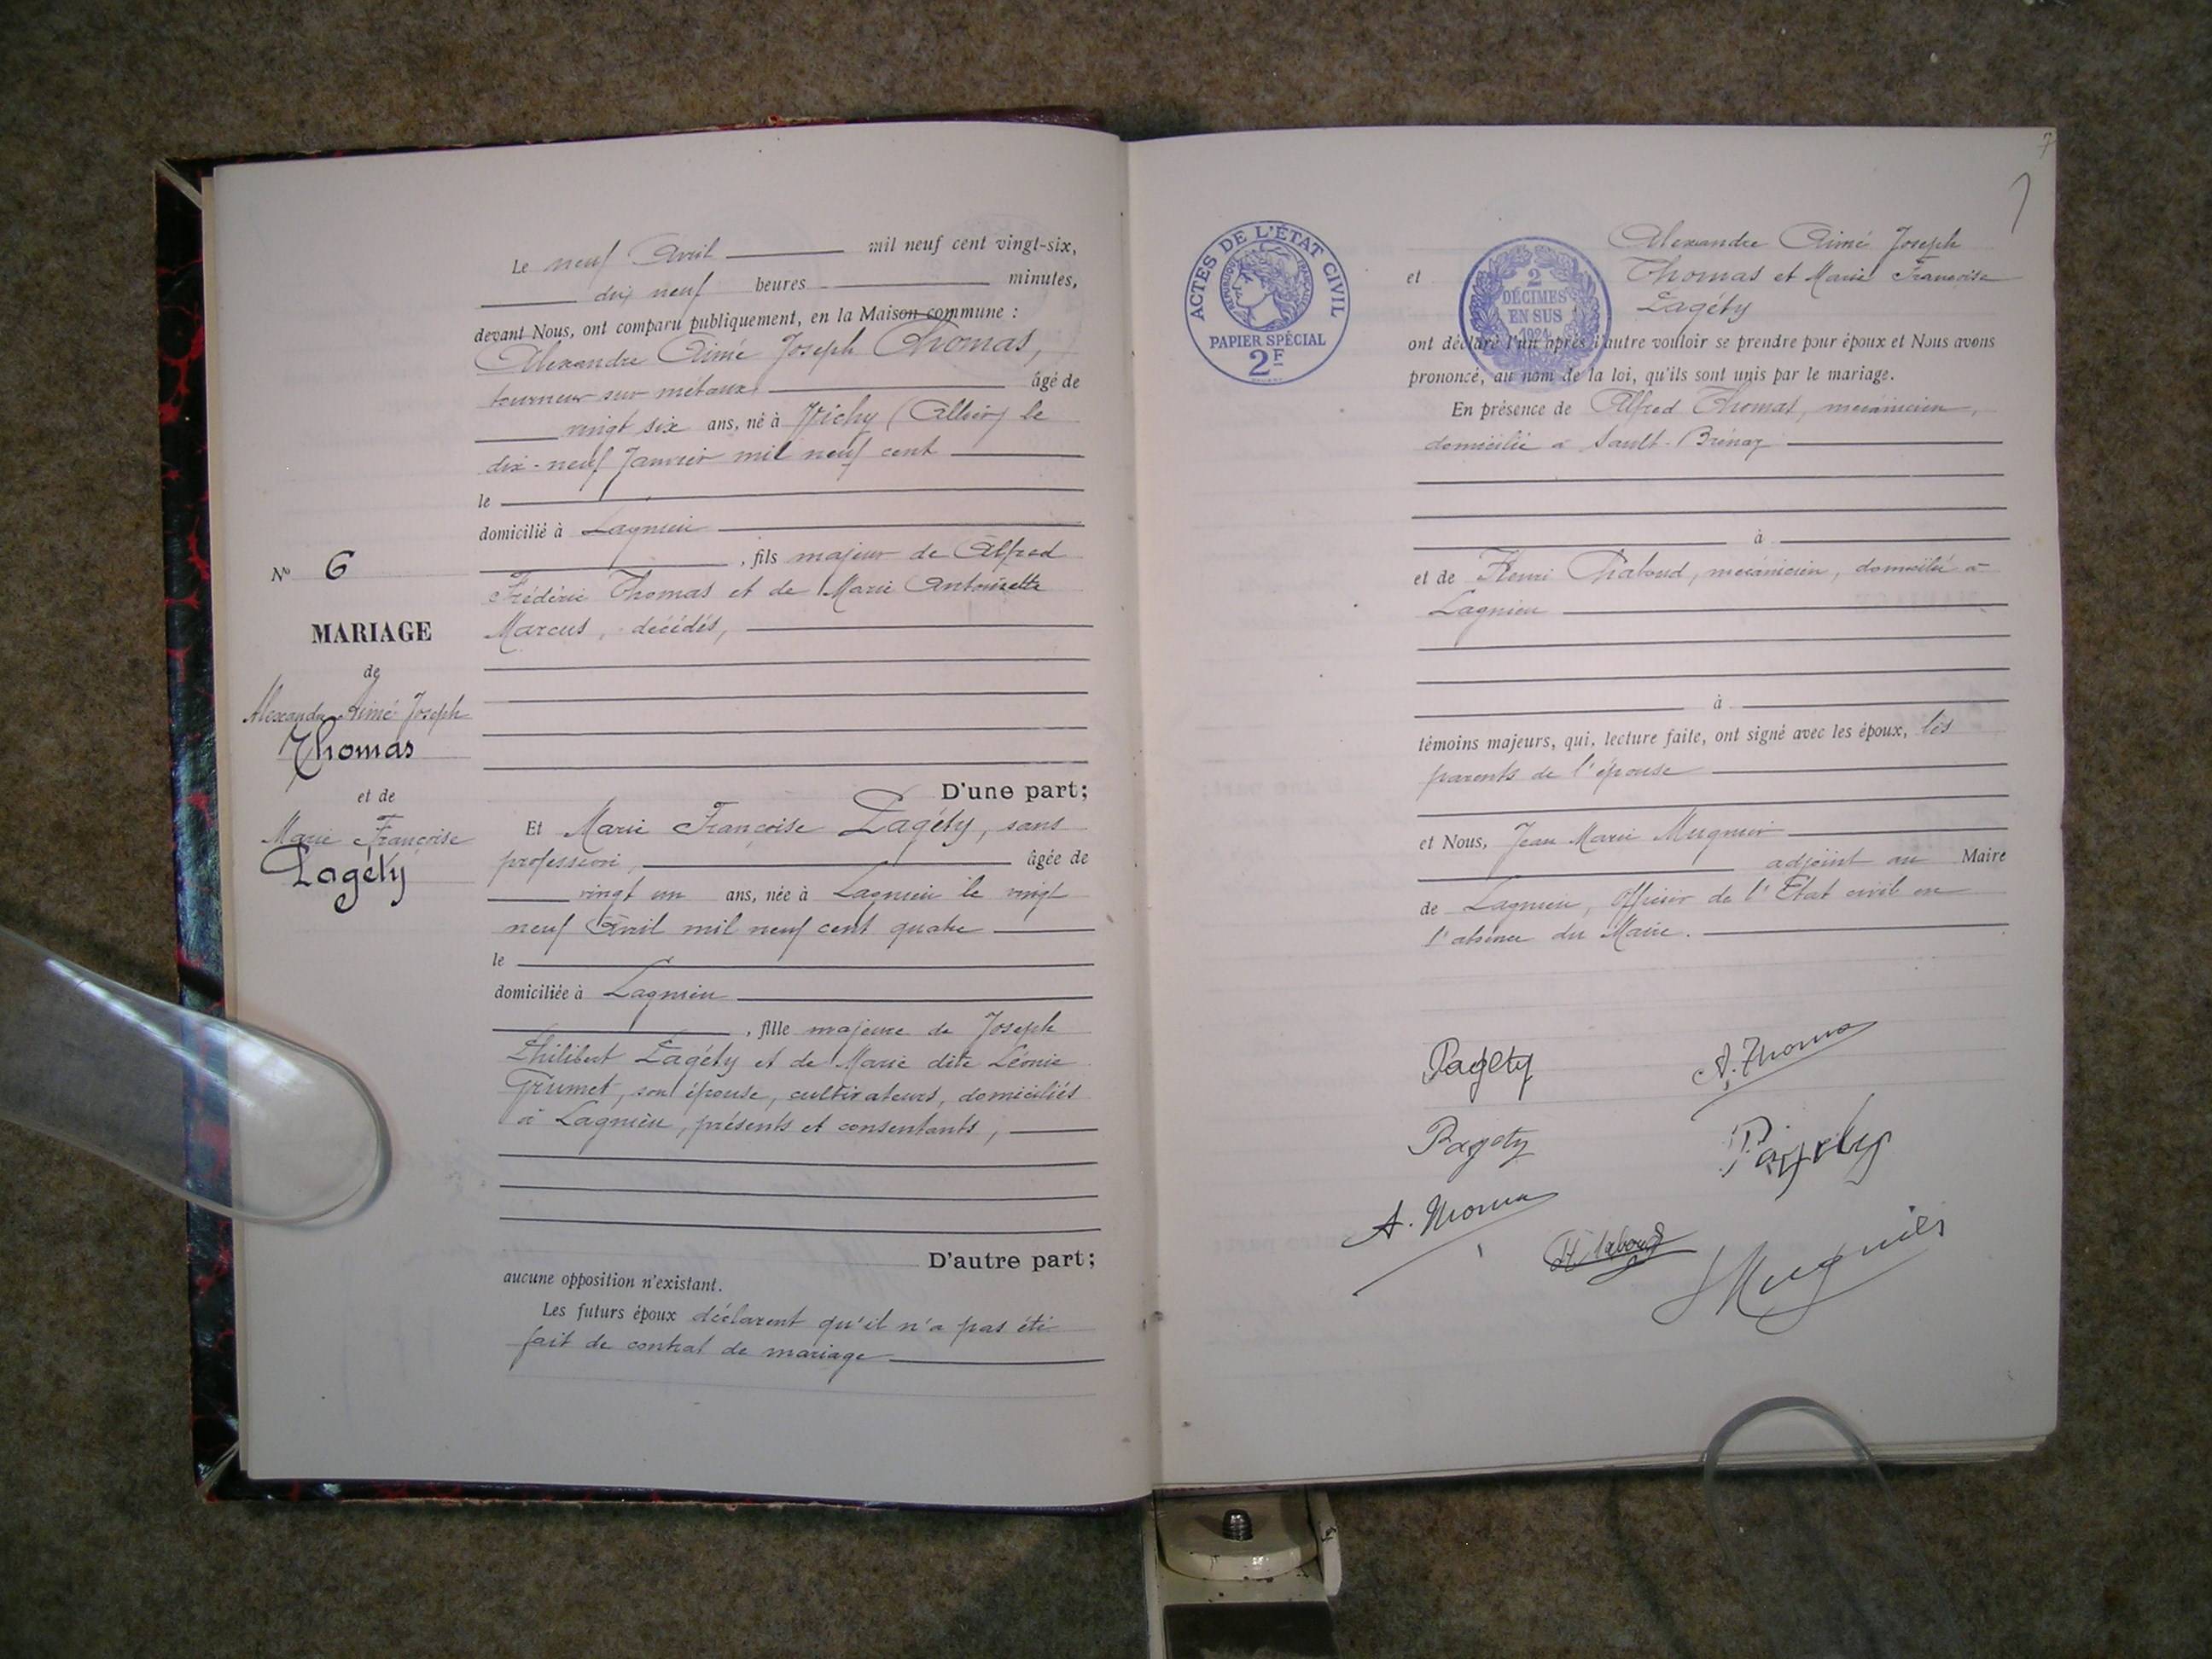 Le neuf Avril mil neuf cent vingt-six,
dix neuf heures minutes,
devant Nous, ont comparu publiquement, en la Maison commune :
Alexandre Aimé Joseph Thomas,
tourneur sur métaux âgé de
vingt six ans, né à Vichy (Allier) le
dix-neuf Janvier mil neuf cent
le
domicilié à Lagnieu
, fils majeur de Alfred
Frédéric Thomas et de Marie Antoinette
Marcus, décédés,
N° 6
MARIAGE
de
Alexandre Aimé Joseph
Thomas
et de
Marie Françoise
Pagéty
D'une part;
Et Marie Françoise Pagéty, sans
profession, âgée de
vingt un ans, née à Lagnieu le vingt
neuf Avril mil neuf cent quatre
le
domiciliée à Lagnieu
, fille majeure de Joseph
Philibert Pagéty et de Marie dite Léonie
Grumet, son épouse, cultivateurs, domiciliés
à Lagnieu, présents et consentants,
D'autre part;
aucune opposition n'existant.
Les futurs époux déclarent qu'il n'a pas été
fait de contrat de mariage
7
ACTES DE L'ÉTAT CIVIL
RÉPUBLIQUE FRANÇAISE
PAPIER SPÉCIAL
2F
2
DÉCIMES
EN SUS
1924
Alexandre Aimé Joseph
et Thomas et Marie Françoise
Pagéty
ont déclaré l'un après l'autre vouloir se prendre pour époux et Nous avons
prononcé, au nom de la loi, qu'ils sont unis par le mariage.
En présence de Alfred Thomas, mécanicien,
domicilié à Sault-Brénaz
à
et de Henri Chaboud, mécanicien, domicilié à
Lagnieu
à
témoins majeurs, qui, lecture faite, ont signé avec les époux, les
parents de l'épouse
et Nous, Jean Marie Mugnier
adjoint au Maire
de Lagnieu, Officier de l'Etat civil en
l'absence du Maire.
Pagéty A. Thomas
Pagéty Pagéty
A. Thomas H Chaboud J Mugnier